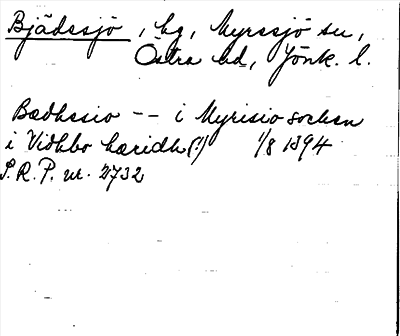 Bjädssjö, hg, Myrssjö sn,
Östra hd, Jönk. l.
Bædhssio -- i Myrisio sochsn
i Vidhbo hæridh (!) 1/8 1394
S.R.P. nr. 2732